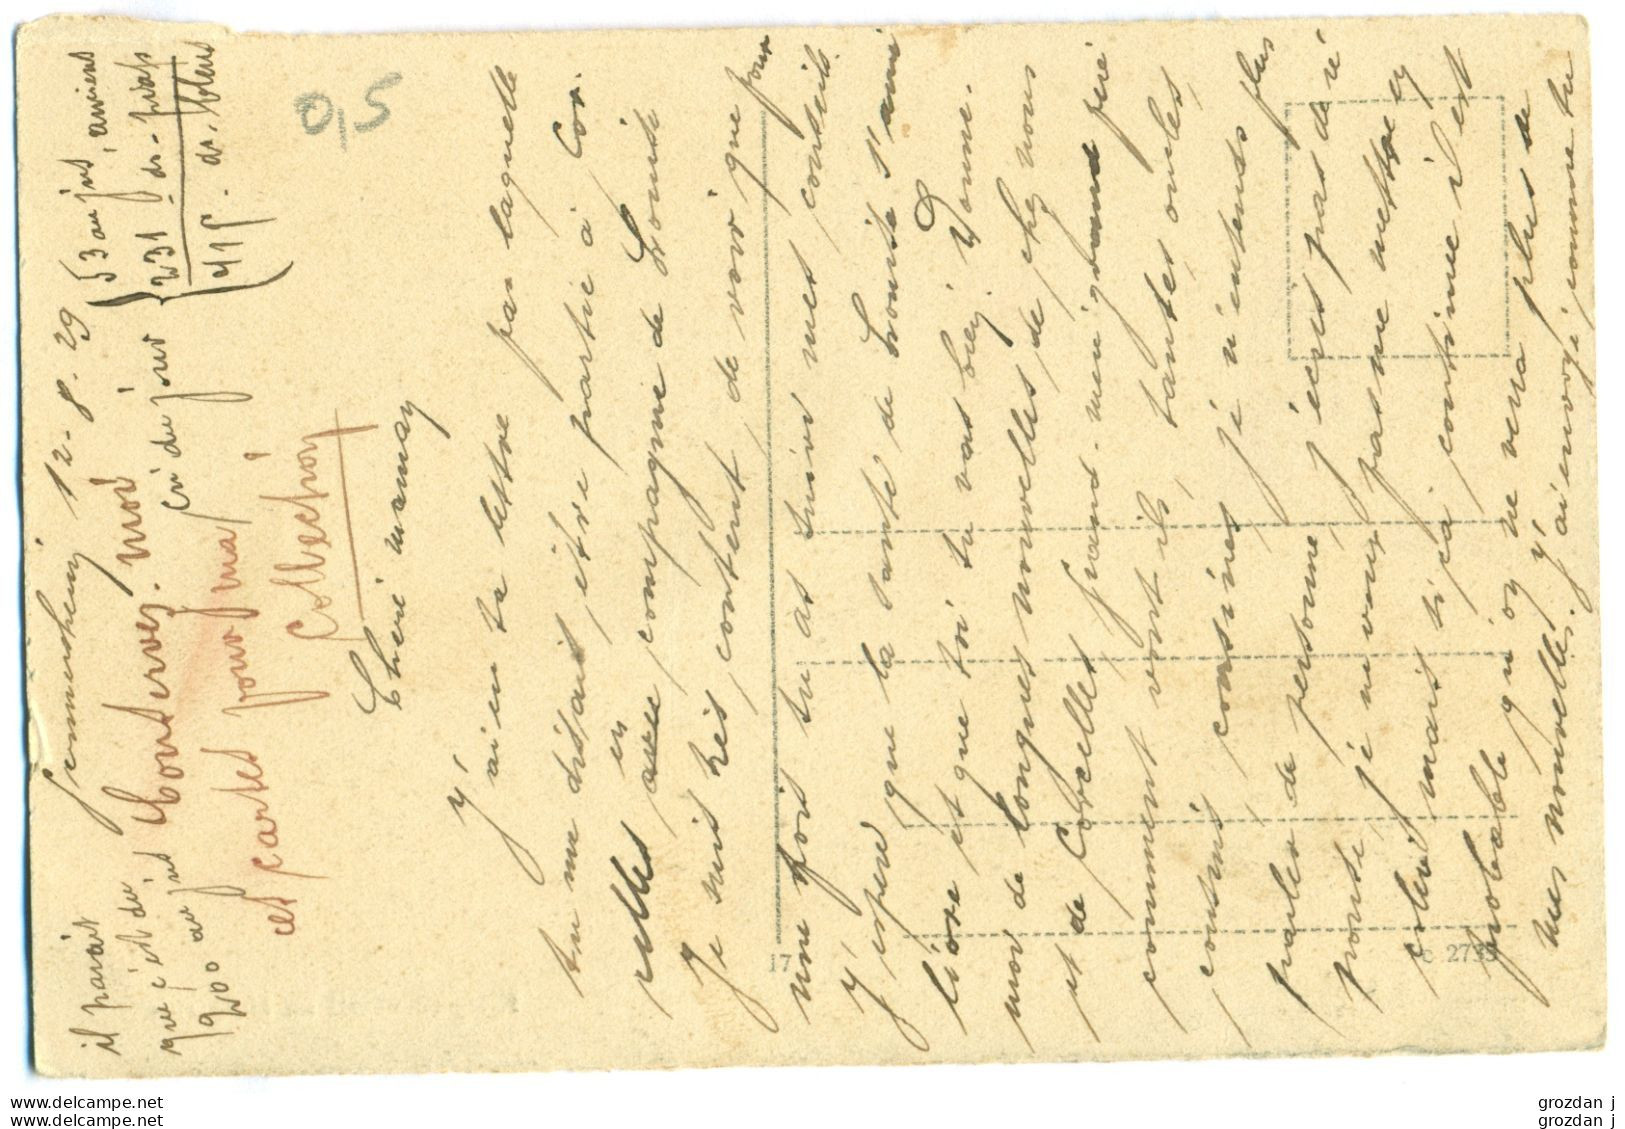 il parait
que c'est du
200 au jus
Gemersheim 12.8.29
53 au jus, anciens
231 du. piafs
415. du. bleus
cri du jour
Conservez. moi
ces cartes pour ma
Collection
0,5
Cherè maman
J'ai eu ta lettre par laquelle
tu me disait, être partie à Cor.
celles en compagnie de Louise
Je suis très content de voir que pour
une fois tu as suivi mes conseils.
J'espère que la santé de Louise s'ami
liore et que toi tu vas bien. Donne.
moi de longues nouvelles, de chez nous
et de Corcelles grand. mère grand père
comment vont ils, tantes oncles
cousins cousines je n'entends plus
parler de personne, j'écris pas de ré
ponse, je ne veux pas me mettre en
colère mais si ça continue il est
probable qu'on ne verra plus de
mes nouvelles. J'ai envoyé comme tu
17
c 2735
delcampe.net
delcampe.net
grozdan j
grozdan j